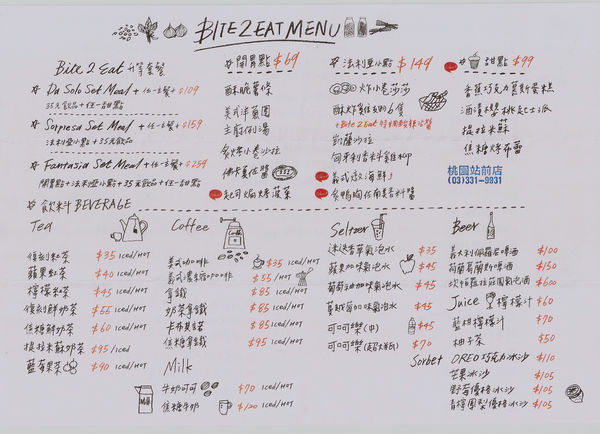 BITE 2 EAT MENU
Bite 2 Eat 升等套餐
Da Solo Set Meal + 任一主餐 + $109
35元飲品 + 任一甜點
Sorpresa Set Meal + 任一主餐 + $159
法利亞小點 + 35元飲品
Fantasia Set Meal + 任一主餐 + $259
開胃點 + 法利亞小點 + 35元飲品 + 任一甜點
開胃點 $69
酥脆薯條
美式洋蔥圈
主廚例湯
炙烤小卷沙拉
起司焗烤菠菜
法利亞小點 $149
炸小卷莎莎
酥炸雞翅6隻
凱薩沙拉
義式燉海鮮
炙鴨胸佐南美香料醬
甜點 $99
香蕉巧克力莫斯蛋糕
酒漬櫻桃克士派
提拉米蘇
焦糖烤布蕾
桃園站前店
(03)331-9931
飲料 BEVERAGE
Tea
復刻紅茶 $35 Iced/HOT
蘋果紅茶 $40 Iced/HOT
檸檬紅茶 $45 Iced/HOT
復刻鮮奶茶 $55 Iced/HOT
焦糖鮮奶茶 $60 Iced/HOT
提拉米蘇奶茶 $95/Iced
藍莓果茶 $90 Iced/HOT
Coffee
美式咖啡 $35 Iced/HOT
美式濃縮咖啡 $55/HOT
拿鐵 $85 Iced/HOT
奶茶拿鐵 $85 Iced/HOT
卡布其諾 $85 Iced/HOT
焦糖拿鐵 $95 Iced/HOT
Milk
牛奶可可 $70 Iced/HOT
焦糖牛奶 $120 Iced/HOT
Seltzer
迷迭香草氣泡水 $35
蘋果加味氣泡水 $45
葡萄柚加味氣泡水 $45
草莓加味氣泡水 $45
可口可樂(中) $45
可口可樂 $70
Beer
義大利佩羅尼啤酒 $100
荷蘭葛蘭斯啤酒 $150
坎帕羅拉莊園氣泡酒 $600
Juice 檸檬汁 $60
藍柑檸檬汁 $70
柚子茶 $50
Sorbet OREO巧克力冰沙 $110
芒果冰沙 $105
野莓優格冰沙 $105
青檸鳳梨優格冰沙 $105